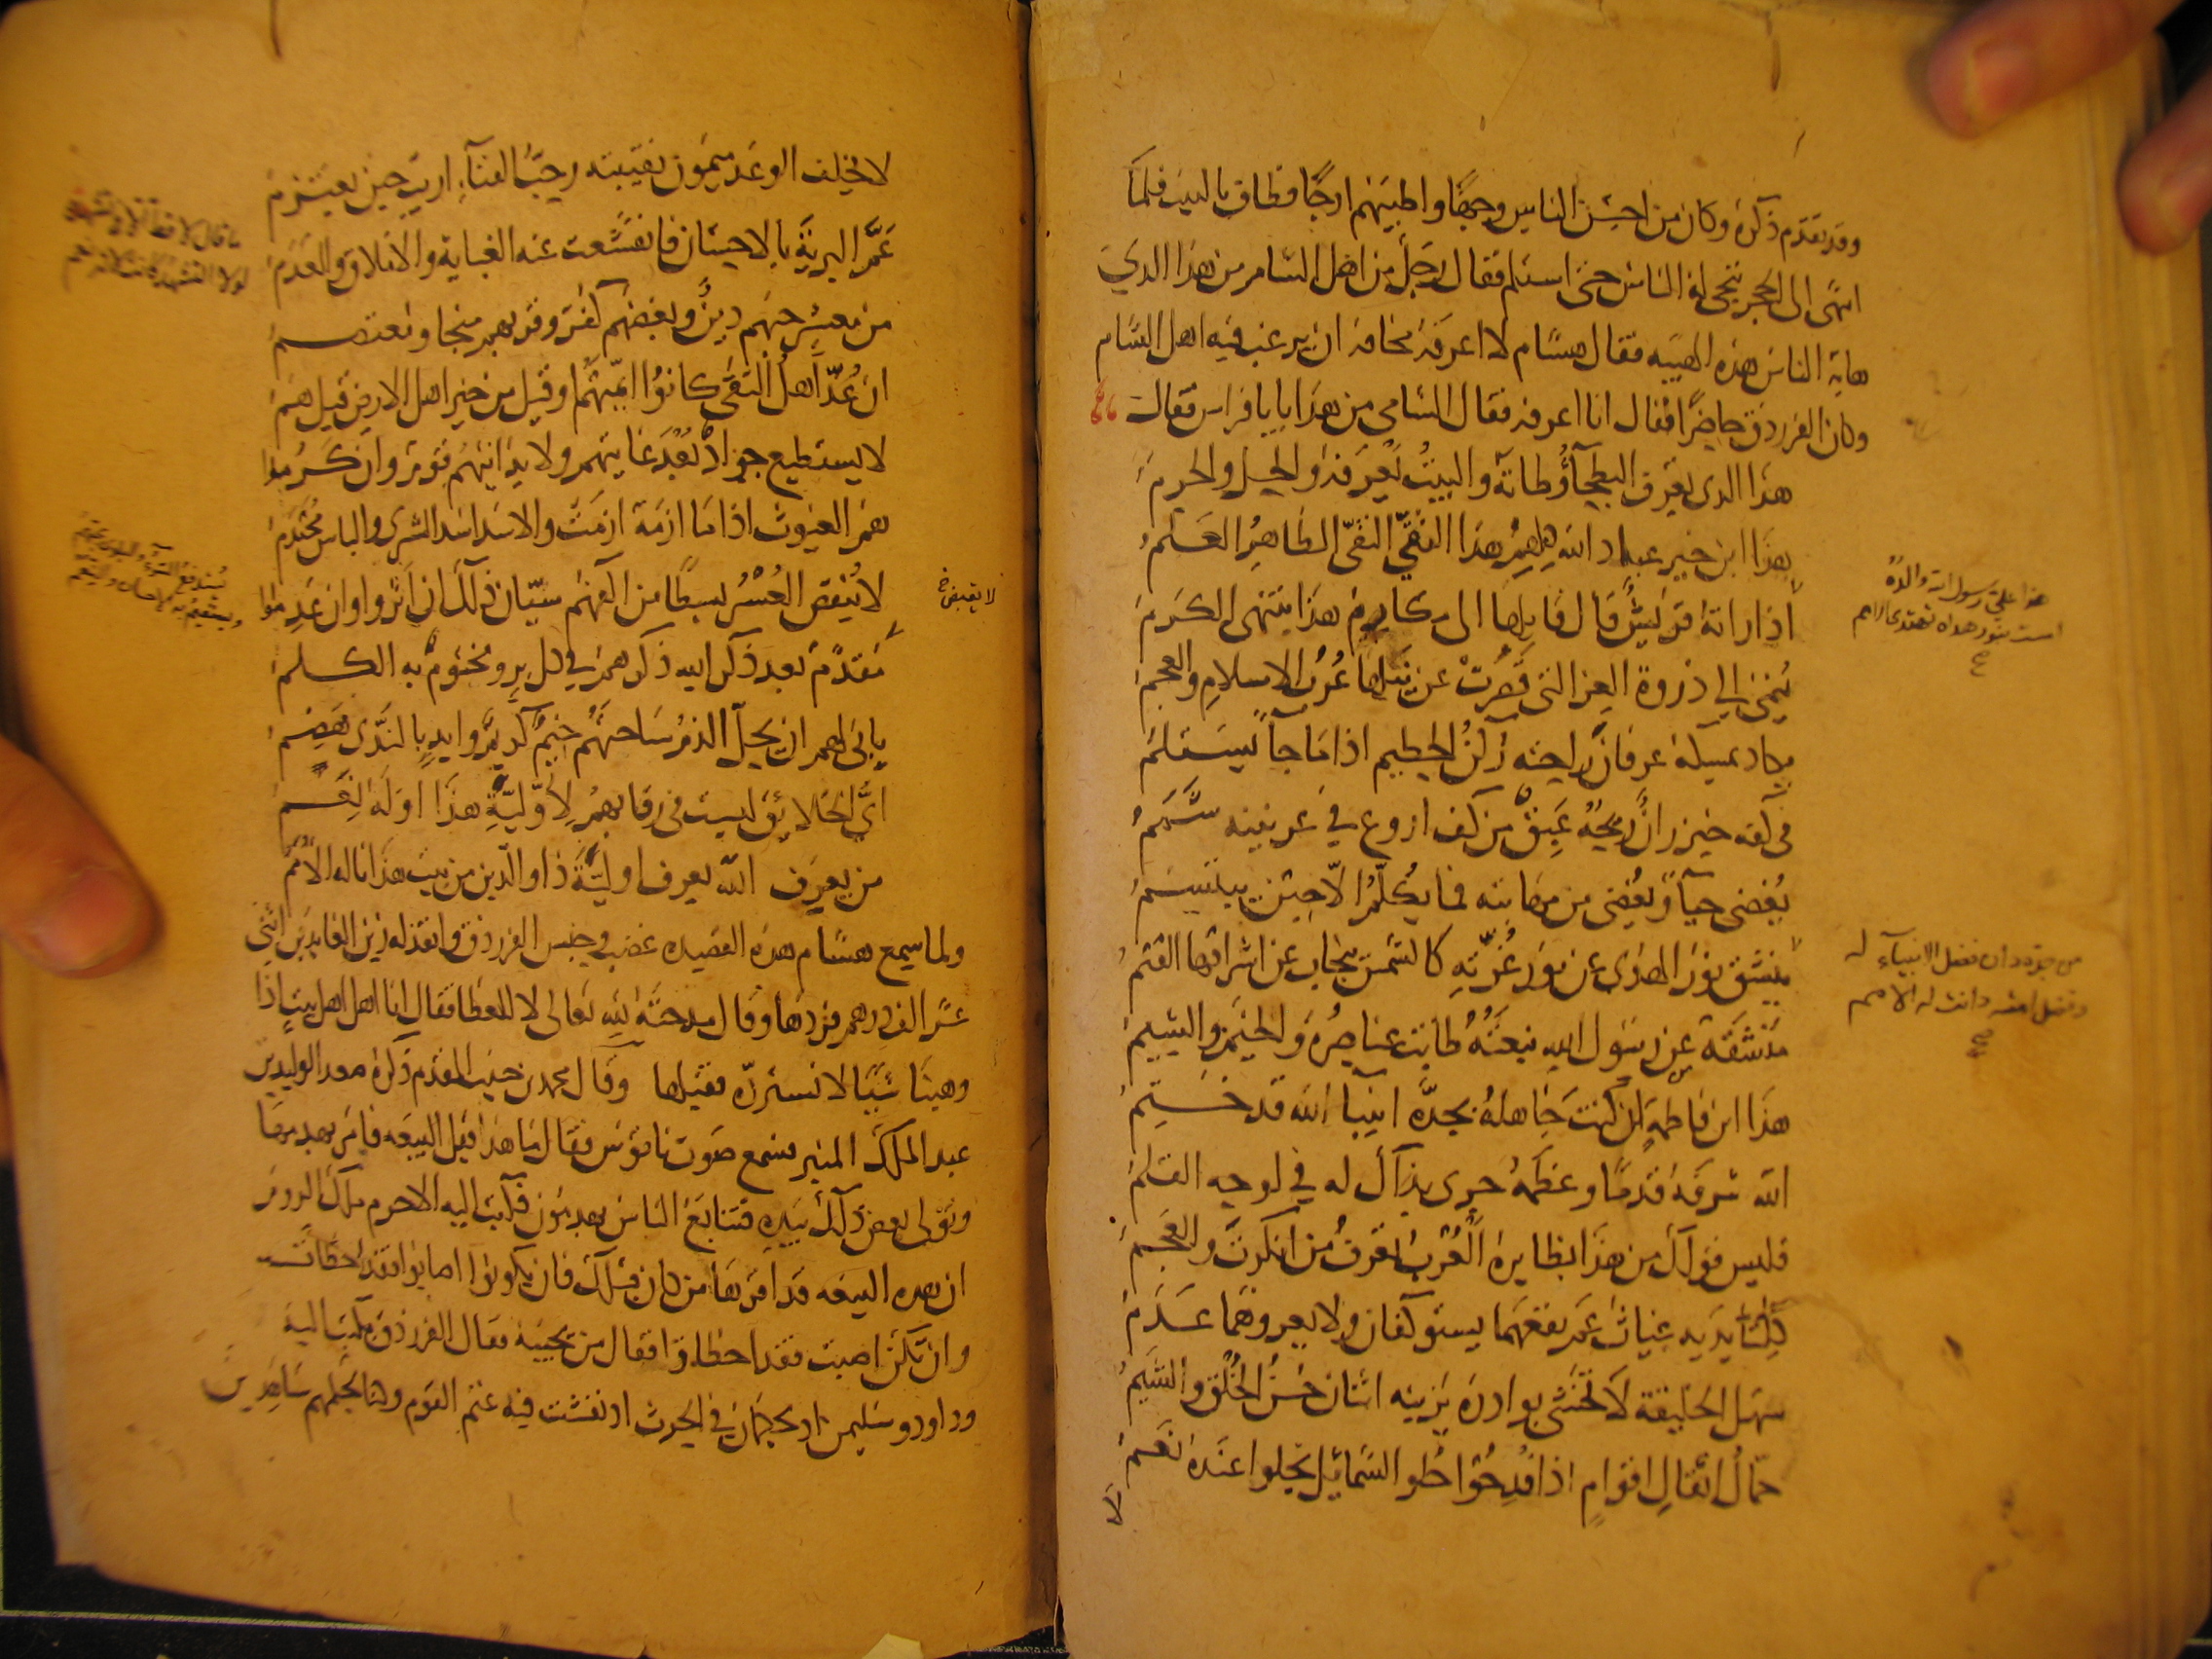 وقد تقدم ذكره وكان من احسن الناس وجهًا واطيبهم ارجًا فطاف بالبيت فلما
انتهى الى الحجر تنحى له الناس حتى استلم فقال رجل من اهل الشام من هذا الذي
هابه الناس هذه الهيبه فقال هشام لا اعرفه مخافة ان يرغب فيه اهل الشام
وكان الفرزدق حاضرًا فقال انا اعرفه فقال الشامي من هذا يا با فراس فقال
هذا الذى تعرف البطحآؤُ طاته والبيتُ يعرفه والحل والحرم
هذا ابن خير عباد الله كلهم هذا التقي النقي الطاهر العلم
هذا علي رسول الله والدهُ
امست بنور هداه تهتدي الامم
صح
اذا راته قريش قال قايلها الى مكارم هذا ينتهى الكرم
ينمى الى ذروة العز التى قصرت عن نيلها عرب الاسلام والعجم
يكاد يمسكه عرفان راحته ركن الحطيم اذا ما جآ يستلم
فى كفه خيزران ريحه عبق من كف اروع في عرنينه شمم
يغضى حيآ ويغضى من مهابته فما يكلم الا حين يبتسم
من جده دان فضل الانبيآء له
وفضل امته دانت له الامم
صح
ينشق نور الهدى عن نور غرته كالشمس ينجاب عن اشراقها القتم
مشتقة من رسول الله نبعته طابت عناصره والخيم والشيم
هذا ابن فاطمة ان كنت جاهله بجده انبيا الله قد ختم
الله شرفه قدمًا وعظمه جرى بذاك له في لوحه القلم
فليس قولك من هذا بضايره العرب تعرف من انكرت والعجم
كلتا يديه غياث عم نفعهما يستوكفان ولا يعروهما عدم
سهل الخليقة لا تخشى بوادره يزينه اثنان حسن الخلق والشيم
حمال اثقال اقوام اذا فدحوا حلو الشمائل تحلوا عنده نعم
لا
لا يخلف الوعد ميمون نقيبته رحب الفنآء اريب حين يعتزم
ما قال لا قط الا في تشهده
لولا التشهد كانت لاءه نعم
عم البرية بالاحسان فانقشعت عنه الغياية والاملاق والعدم
من معشر حبهم دين وبغضهم كفر وقربهم منجا ومعتصم
ان عد اهل التقى كانوا ايمتهم او قيل من خير اهل الارض قيل هم
لا يستطيع جواد بعد غايتهم ولا يدانيهم قوم وان كرموا
هم الغيوث اذا ما ازمة ازمت والاسد اسد الشرى والباس محتدم
يستدفع السوء والبلوى بحبهم
ويستقيم به الاحسان والنعم
لا ينقص العسر بسطًا من اكفهم سيان ذلك ان اثروا وان عدموا
لا يقبض خ
مقدم بعد ذكر الله ذكرهم في كل بر ومختوم به الكلم
يابى لهم ان يحل الذم ساحتهم خيم كريم وايد بالندى هضم
اى الخلايق ليست فى رقابهم لاولية هذا او له نعم
من يعرف الله يعرف اولية ذا والدين من بيت هذا ناله الامم
ولما سمع هشام هذه القصيده غضب وحبس الفرزدق وانفذ له زين العابدين اثنى
عشر الف درهم فردها وقال مدحته لله تعالى لا للعطا فقال انا اهل اهل بيت اذا
وهبنا شيئًا لا نسترده فقبلها وقال محمد بن حبيب المقدم ذكره صعد الوليد بن
عبد الملك المنبر فسمع صوت ناقوس فقال ما هذا قيل البيعه فامر بهدمها
وتولى بعض ذلك بيده فتتابع الناس يهدمون فكتب اليه الاحرم ملك الروم
ان هذه البيعه قد اقرها من كان قبلك فان يكونوا اصابوا فقد اخطأت
وان تكن اصبت فقد اخطاوا فقال من يجيبه فقال الفرزدق يكتب اليه
وداود وسليمن اذ يحكمان في الحرث اذ نفشت فيه غنم القوم وكنا لحكمهم شاهدين